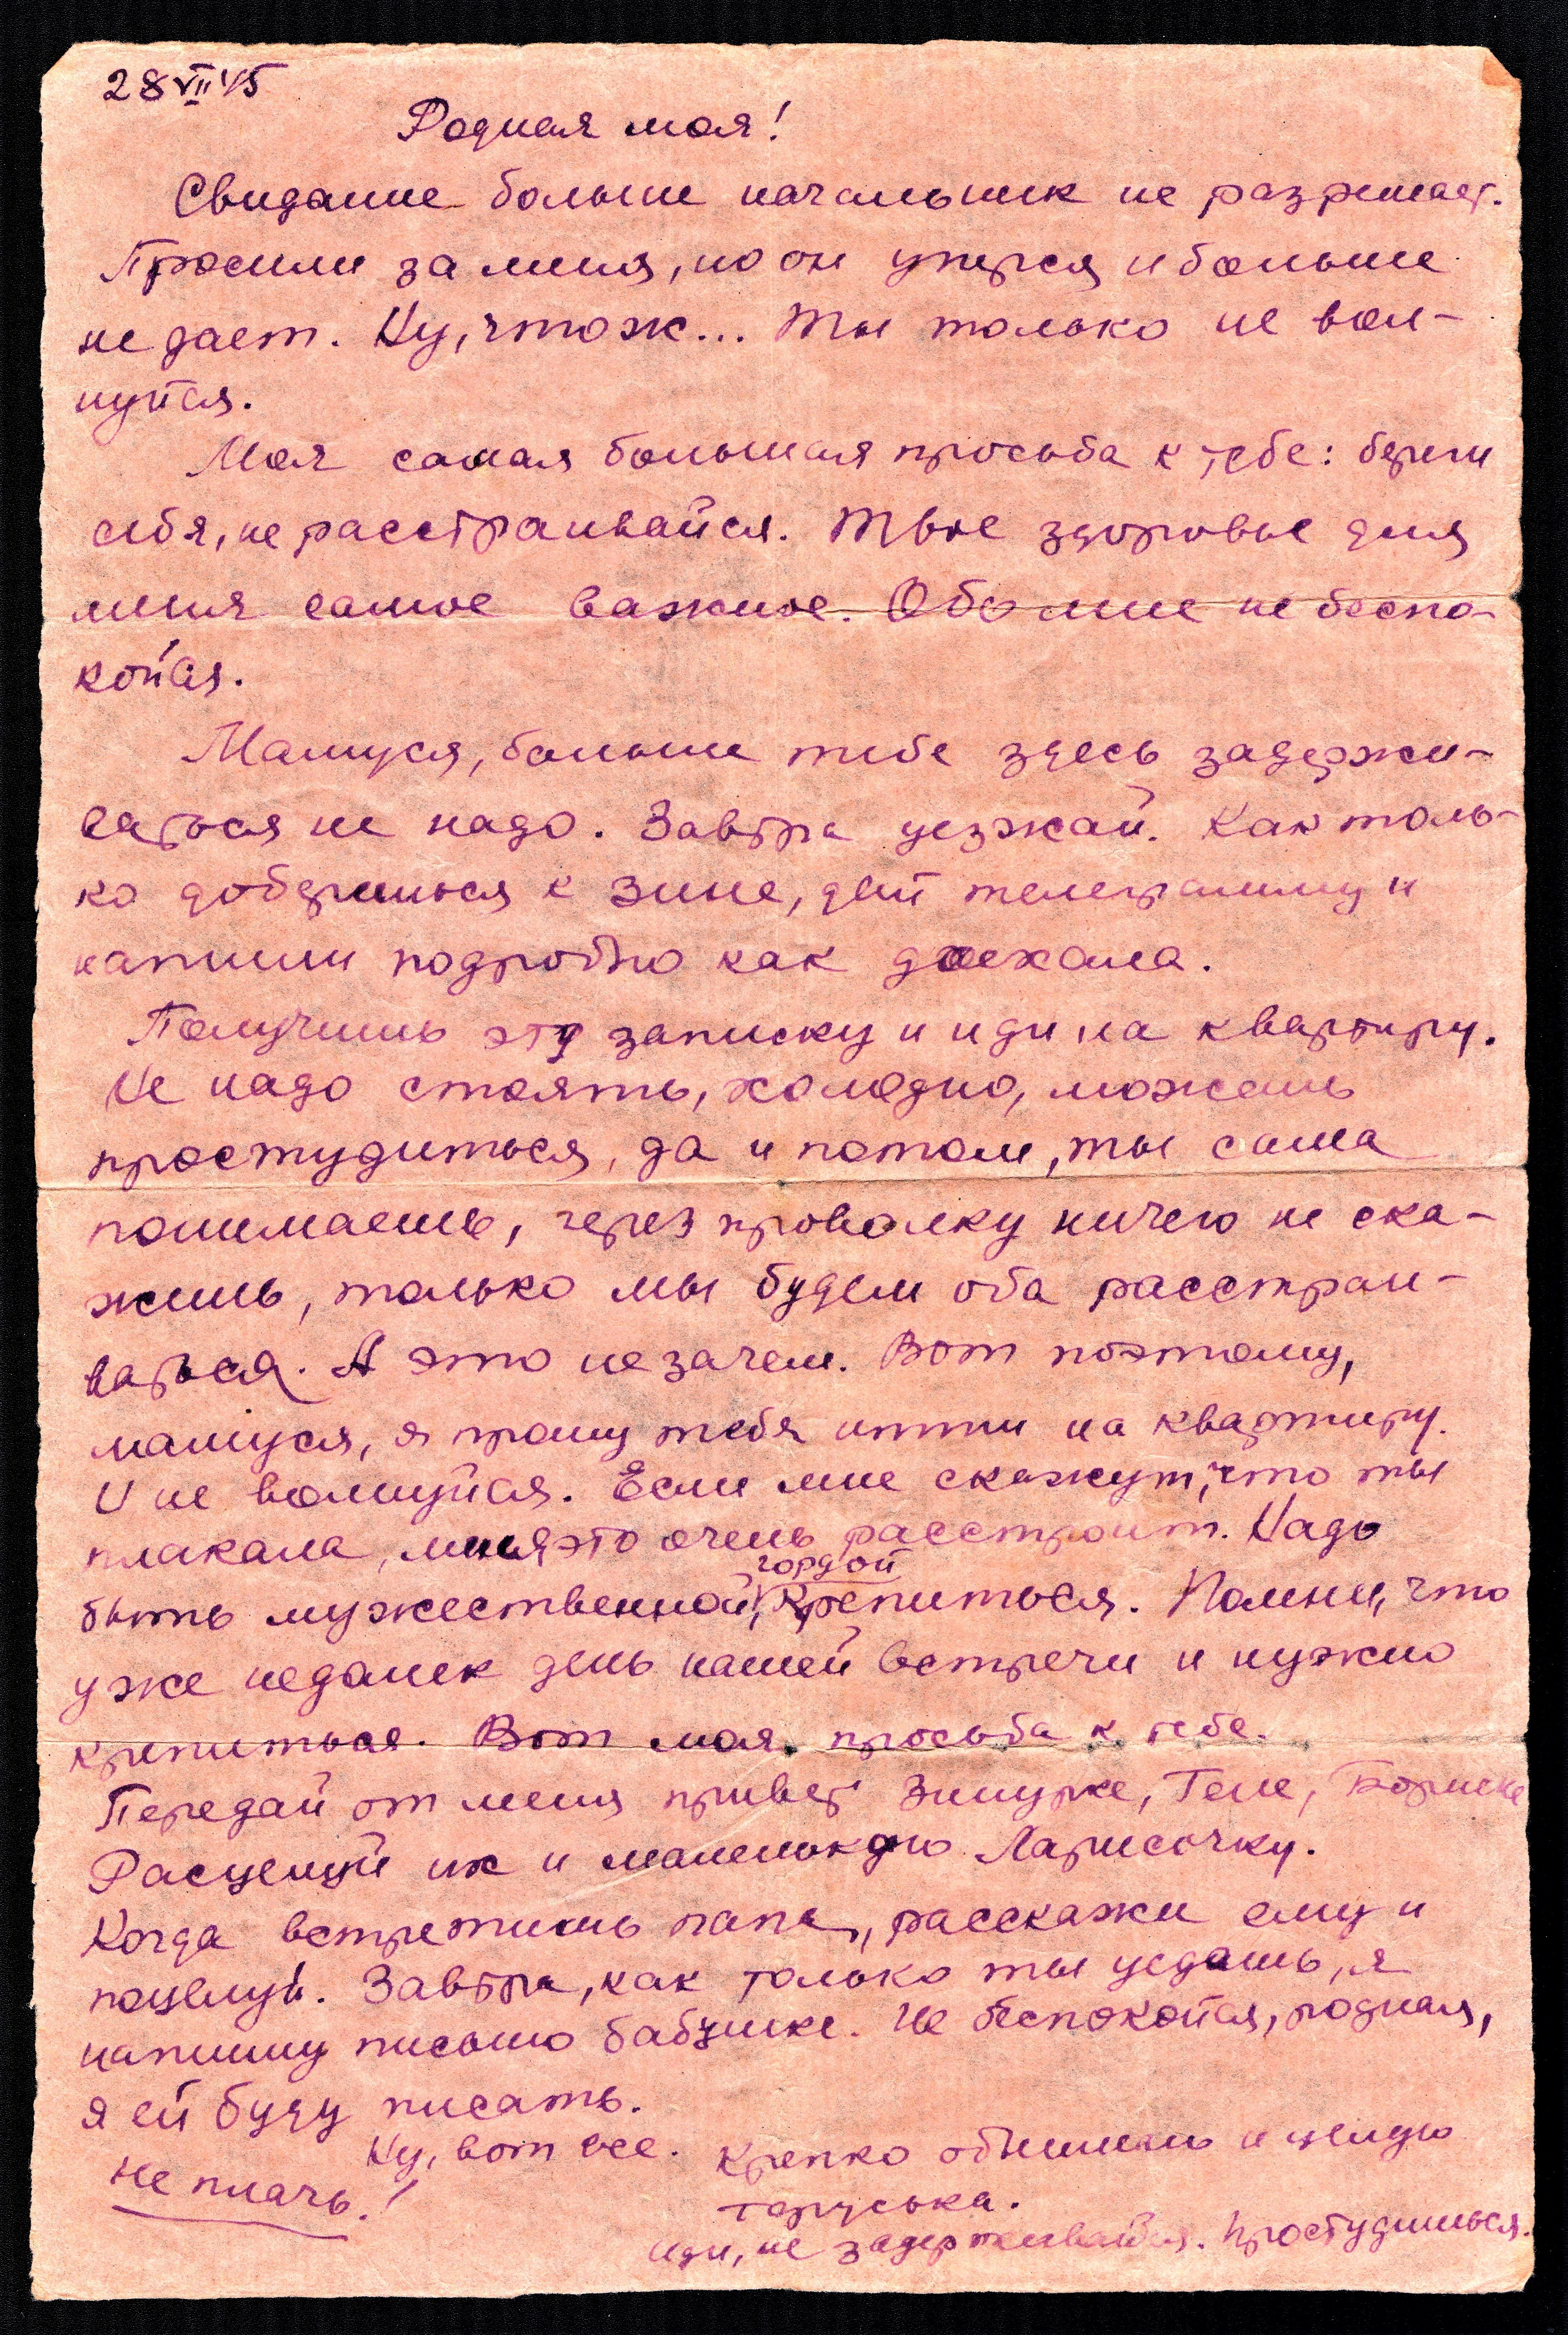 28 VII 45
Родная моя!
Свидание больше начальник не разрешает.
Просили за меня, но он уперся и больше
не дает. Ну, что ж... Ты только не вол-
нуйся.
Моя самая большая просьба к тебе: береги
себя, не расстраивайся. Твое здоровье для
меня самое важное. Обо мне не беспо-
койся.
Мамуся, больше тебе здесь задержи-
ваться не надо. Завтра уезжай. Как толь-
ко доберешься к Зине, дай телеграмму и
напиши подробно как доехала.
Получишь эту записку и иди на квартиру.
Не надо стоять, холодно, можешь
простудиться, да и потом, ты сама
понимаешь, через проволку ничего не ска-
жешь, только мы будем оба расстраи-
ваться. А это не зачем. Вот поэтому,
мамуся, я прошу тебя итти на квартиру.
И не волнуйся. Если мне скажут, что ты
плакала, меня это очень расстроит. Надо
быть мужественной, гордой, крепиться. Помни, что
уже недалек день нашей встречи и нужно
крепиться. Вот моя просьба к тебе.
Передай от меня привет Зинурке, Геле, Бориске
Расцелуй их и маленькую Ларисочку.
Когда встретишь папу, расскажи ему и
поцелуй. Завтра, как только ты уедешь, я
напишу письмо бабушке. Не беспокойся, родная,
я ей буду писать.
Ну, вот все. Крепко обнимаю и целую
Не плачь!
таруська.
иди, не задерживайся. Простудишься.